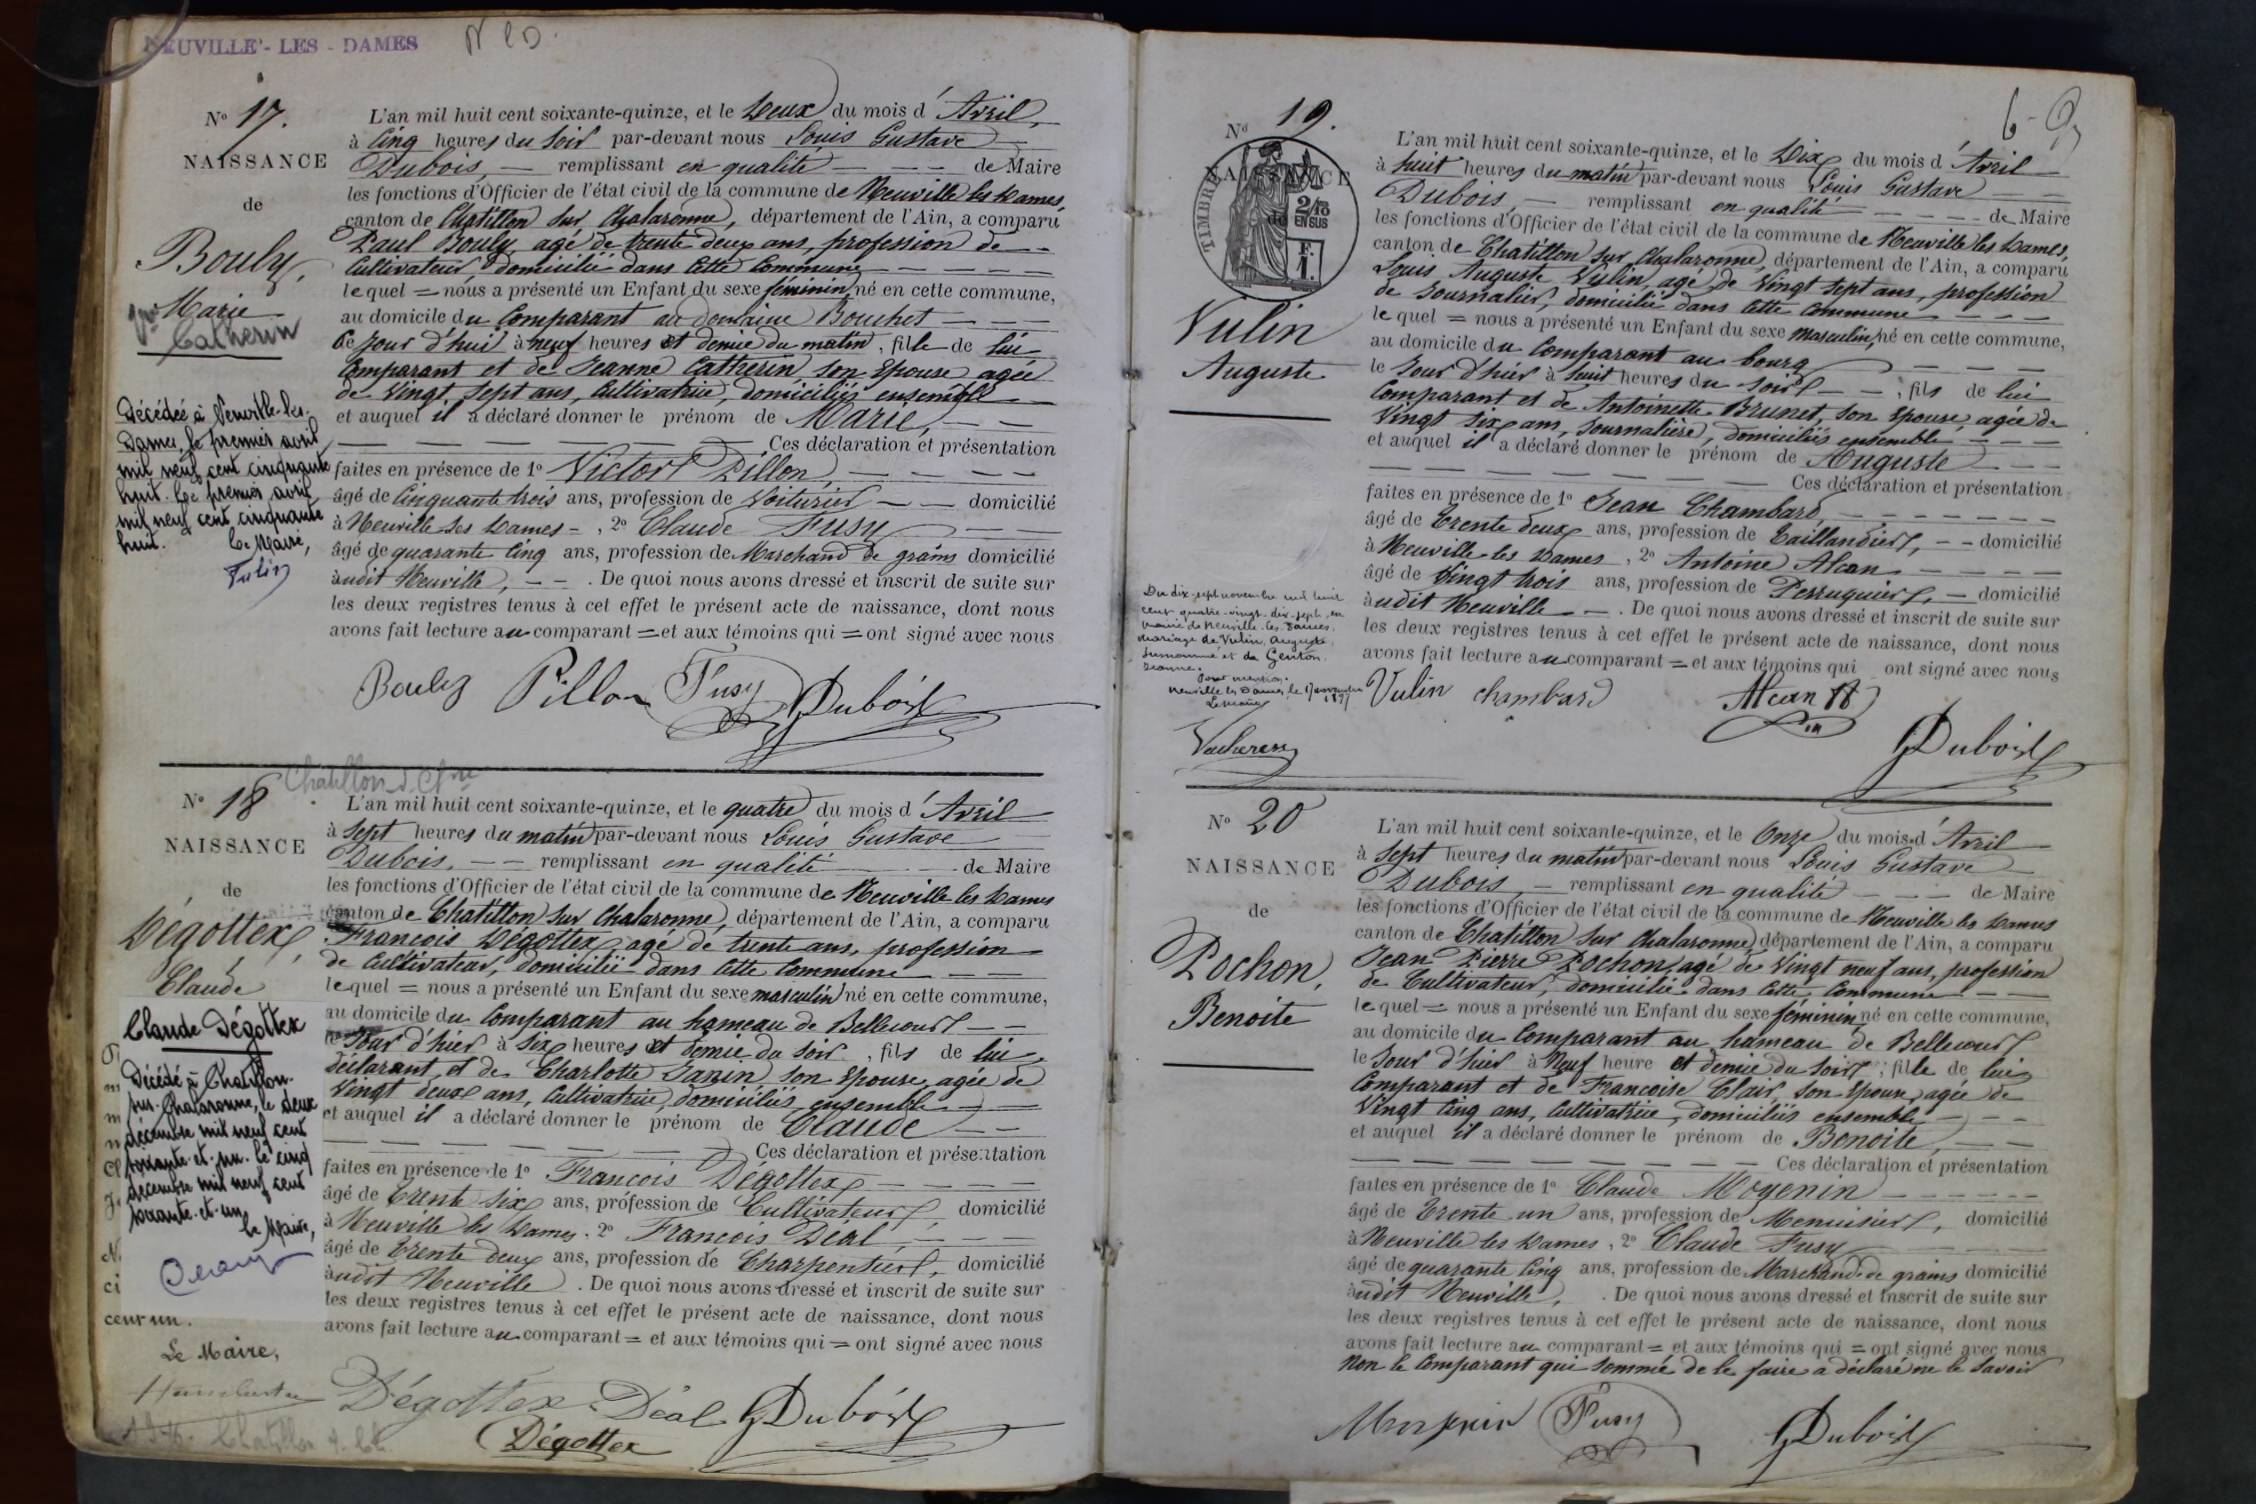 NEUVILLE - LES - DAMES
N° 17.
NAISSANCE
de
Bouly,
Marie
Catherin
Décédée à Neuville-les-
Dames, le premier avril
mil neuf cent cinquante
huit. Le premier avril
mil neuf cent cinquante
huit.
Le Maire,
Vulin
L'an mil huit cent soixante-quinze, et le Deux du mois d'Avril,
à Cinq heures du Soir par-devant nous Louis Gustave
Dubois, remplissant en qualité de Maire
les fonctions d'Officier de l'état civil de la commune de Neuville les Dames,
canton de Chatillon sur Chalaronne, département de l'Ain, a comparu
Paul Bouly, agé de trente deux ans, profession de
Cultivateur, domicilié dans Cette Commune
lequel = nous a présenté un Enfant du sexe féminin, né en cette commune,
au domicile du Comparant au domaine Bouchet
Ce Jour d'hui à neuf heures et demie du matin, fille de lui
Comparant et de Jeanne Catherin son Epouse agée
de Vingt Sept ans, Cultivatrice, domiciliés ensemble
et auquel il a déclaré donner le prénom de Marie,
Ces déclaration et présentation
faites en présence de 1° Victor Pillon,
âgé de Cinquante trois ans, profession de Voiturier domicilié
à Neuville les Dames =, 2° Claude Fusy
âgé de quarante Cinq ans, profession de Marchand de grains domicilié
audit Neuville, . De quoi nous avons dressé et inscrit de suite sur
les deux registres tenus à cet effet le présent acte de naissance, dont nous
avons fait lecture au comparant = et aux témoins qui = ont signé avec nous
Bouly Pillon Fusy GDubois
Chatillon s. Chne
N° 18
NAISSANCE
de
Dégottex,
Claude
Claude Dégottex
Décédé à Chatillon-
sur-Chalaronne, le deux
décembre mil neuf cent
soixante-et-un. le cinq
décembre mil neuf cent
soixante-et-un
le Maire,
cent un.
Le Maire,
L'an mil huit cent soixante-quinze, et le quatre du mois d'Avril
à Sept heures du matin par-devant nous Louis Gustave
Dubois, remplissant en qualité de Maire
les fonctions d'Officier de l'état civil de la commune de Neuville les Dames
canton de Chatillon sur Chalaronne, département de l'Ain, a comparu
Francois Dégottex, agé de trente ans, profession
de Cultivateur, domicilié dans Cette Commune
lequel = nous a présenté un Enfant du sexe masculin né en cette commune,
au domicile du Comparant au hameau de Bellecour
le Jour d'hier à Six heures et demie du soir, fils de lui
déclarant, et de Charlotte Janin, son Epouse, agée de
Vingt deux ans, Cultivatrice, domiciliés ensemble
et auquel il a déclaré donner le prénom de Claude
Ces déclaration et présentation
faites en présence de 1° Francois Dégottex
âgé de Trente six ans, profession de Cultivateur, domicilié
à Neuville les Dames, 2° Francois Déal,
âgé de trente deux ans, profession de Charpentier, domicilié
audit Neuville . De quoi nous avons dressé et inscrit de suite sur
les deux registres tenus à cet effet le présent acte de naissance, dont nous
avons fait lecture au comparant = et aux témoins qui = ont signé avec nous
Dégottex Déal GDubois
Dégottex
N° 19.
NAISSANCE
de
TIMBRE
2/10
EN SUS
F.
1.
Vulin
Auguste
Du dix-sept novembre mil huit
cent quatre-vingt-dix-sept, en
mairie de Neuville-les-Dames,
mariage de Vulin Auguste
surnommé et de Genton
Jeanne.
Pour mention.
Neuville les Dames, le 17 novembre
1897
Le Maire
L'an mil huit cent soixante-quinze, et le Dix du mois d'Avril
à huit heures du matin par-devant nous Louis Gustave
Dubois, remplissant en qualité de Maire
les fonctions d'Officier de l'état civil de la commune de Neuville les Dames,
canton de Chatillon sur Chalaronne, département de l'Ain, a comparu
Louis Auguste Vulin, agé de Vingt Sept ans, profession
de Journalier, domicilié dans Cette Commune
lequel = nous a présenté un Enfant du sexe masculin, né en cette commune,
au domicile du Comparant au bourg
le Jour d'hier à huit heures du soir, fils de lui
Comparant et de Antoinette Brunet, son Epouse, agée de
Vingt six ans, Journalière, domiciliés ensemble
et auquel il a déclaré donner le prénom de Auguste
Ces déclaration et présentation
faites en présence de 1° Jean Chambard
âgé de trente deux ans, profession de Taillandier, domicilié
à Neuville les Dames, 2° Antoine Alcan
âgé de Vingt trois ans, profession de Perruquier, domicilié
audit Neuville . De quoi nous avons dressé et inscrit de suite sur
les deux registres tenus à cet effet le présent acte de naissance, dont nous
avons fait lecture au comparant = et aux témoins qui ont signé avec nous
Vulin chambard Alcan A GDubois
N° 20
NAISSANCE
de
Pochon,
Benoite
L'an mil huit cent soixante-quinze, et le Onze du mois d'Avril
à Sept heures du matin par-devant nous Louis Gustave
Dubois, remplissant en qualité de Maire
les fonctions d'Officier de l'état civil de la commune de Neuville les Dames
canton de Chatillon sur Chalaronne, département de l'Ain, a comparu
Jean Pierre Pochon, agé de Vingt neuf ans, profession
de Cultivateur, domicilié dans Cette Commune
lequel = nous a présenté un Enfant du sexe féminin, né en cette commune,
au domicile du Comparant au hameau de Bellecour
le Jour d'hier à Neuf heure et demie du soir, fille de lui
Comparant et de Francoise Clair, son Epouse, agée de
Vingt Cinq ans, Cultivatrice, domiciliés ensemble
et auquel il a déclaré donner le prénom de Benoite,
Ces déclaration et présentation
faites en présence de 1° Claude Moyenin
âgé de Trente un ans, profession de Menuisier, domicilié
à Neuville les Dames, 2° Claude Fusy
âgé de quarante Cinq ans, profession de Marchand de grains domicilié
audit Neuville, . De quoi nous avons dressé et inscrit de suite sur
les deux registres tenus à cet effet le présent acte de naissance, dont nous
avons fait lecture au comparant = et aux témoins qui = ont signé avec nous
Non le Comparant qui sommé de le faire a déclaré ne le savoir
Fusy GDubois